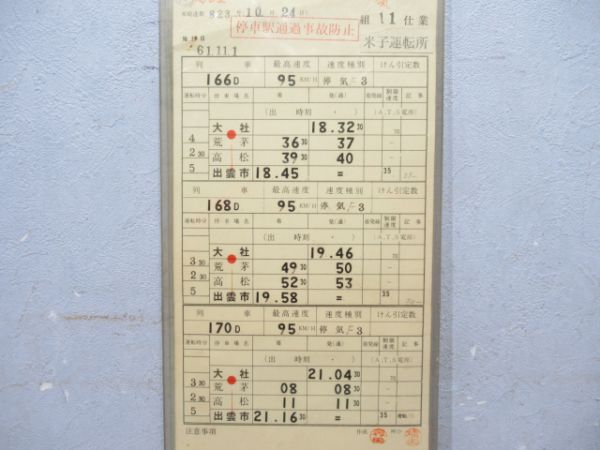 823年10月24日 組 11 仕業
停車駅通過事故防止 米子運転所
61.11 1
列 車 最高速度 速度種別 けん引定数
166D 95 KM/H 停気 3
運転時分 停車場名 着 発(通) 着発線 制限速度 記事
(出 時刻 ・ ) (A.T.S電源)
大社 18.32 30
4 荒茅 36 30 37
2 30 高松 39 30 40
5 出雲市 18.45 = 35
列 車 最高速度 速度種別 けん引定数
168D 95 KM/H 停気 3
運転時分 停車場名 着 発(通) 着発線 制限速度 記事
(出 時刻 ・ ) (A.T.S電源)
大社 19.46
3 30 荒茅 49 30 50
2 30 高松 52 30 53
5 出雲市 19.58 = 35
列 車 最高速度 速度種別 けん引定数
170D 95 KM/H 停気 3
運転時分 停車場名 着 発(通) 着発線 制限速度 記事
(出 時刻 ・ ) (A.T.S電源)
大社 21.04 30
3 30 荒茅 08 08 30
2 30 高松 11 11 30
5 出雲市 21.16 30 = 35
注意事項 作成